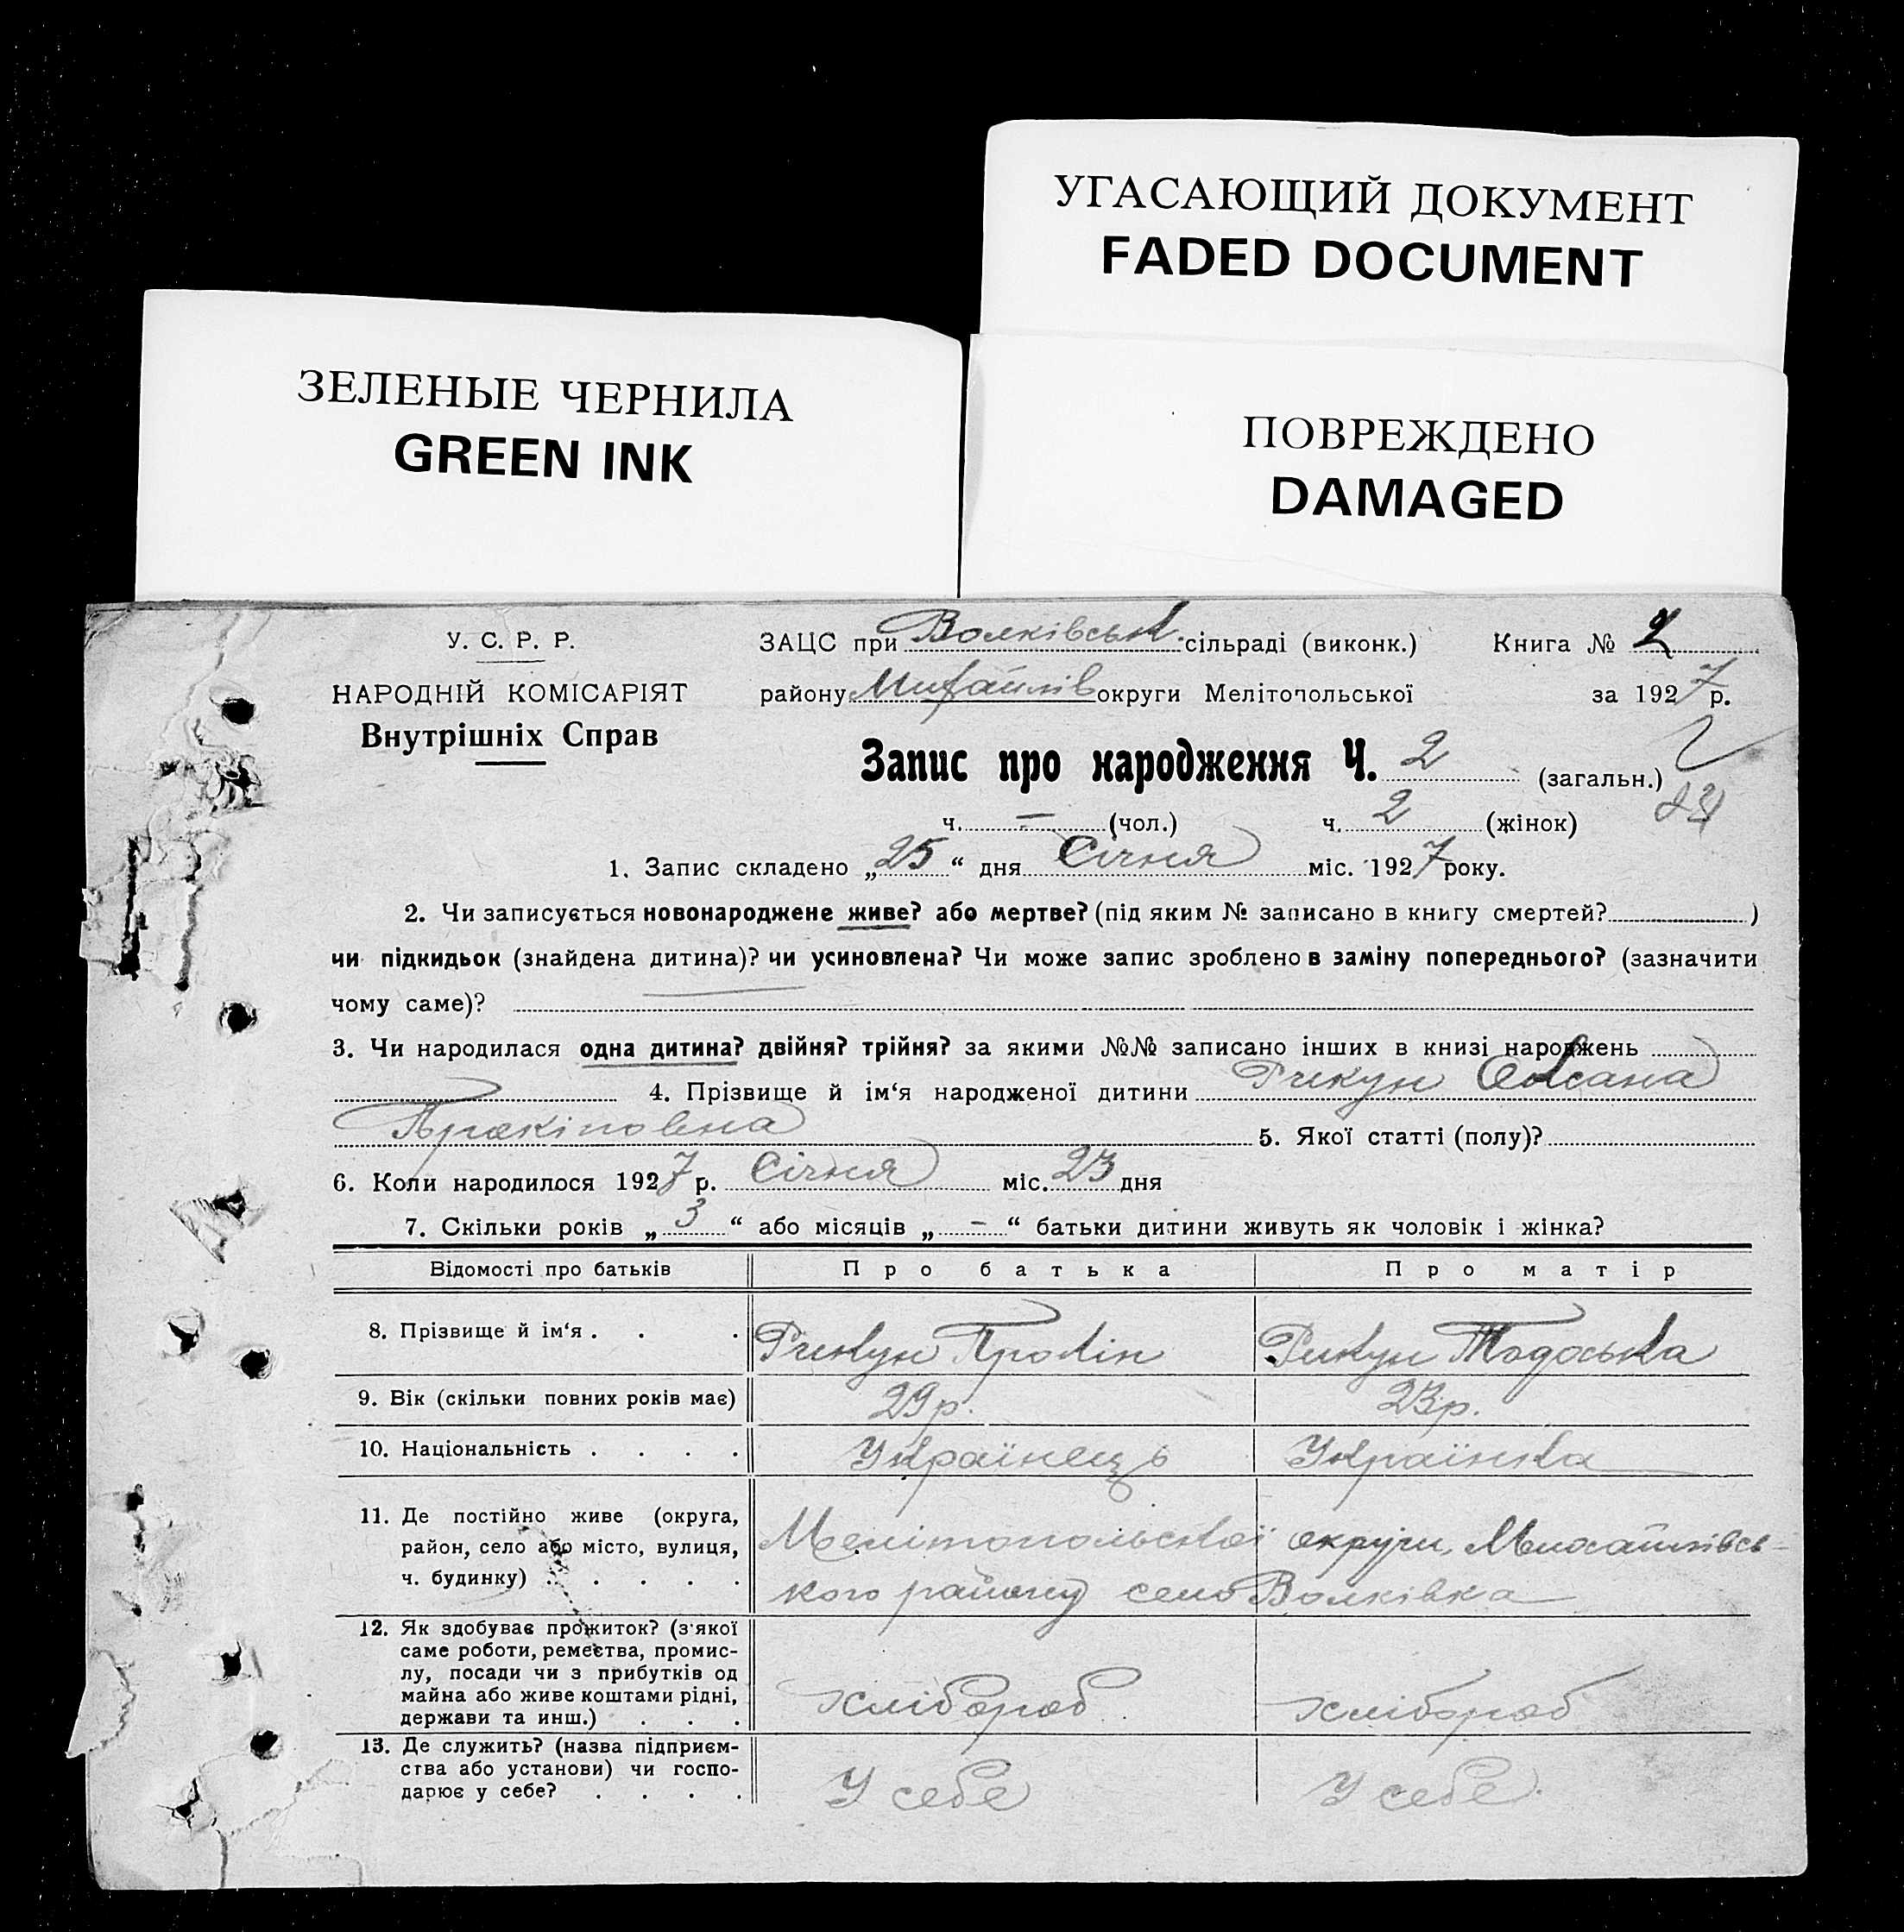 УГАСАЮЩИЙ ДОКУМЕНТ
FADED DOCUMENT
ЗЕЛЕНЫЕ ЧЕРНИЛА
GREEN INK
ПОВРЕЖДЕНО
DAMAGED
У. С. Р. Р.
НАРОДНІЙ КОМІСАРІЯТ
Внутрішніх Справ
ЗАЦС при Волківськ. сільраді (виконк.) Книга № 2
району Михайлів округи Мелітопольської за 1927 р.
Запис про народження Ч. 2 (загальн.)
ч. — (чол.) ч. 2 (жінок)
1. Запис складено „25“ дня Січня міс. 1927 року.
2. Чи записується новонароджене живе? або мертве? (під яким № записано в книгу смертей? )
чи підкидьок (знайдена дитина)? чи усиновлена? Чи може запис зроблено в заміну попереднього? (зазначити
чому саме)?
3. Чи народилася одна дитина? двійня? трійня? за якими №№ записано інших в книзі народжень
4. Прізвище й ім‘я народженої дитини Рикун Оксана
Прокіповна 5. Якої статті (полу)?
6. Коли народилося 1927 р. Січня міс. 23 дня
7. Скільки років „3“ або місяців „–“ батьки дитини живуть як чоловік і жінка?
Відомості про батьків Про батька Про матір
8. Прізвище й ім‘я . . . Рикун Прокіп Рикун Тодоська
9. Вік (скільки повних років має) 29 р. 23 р.
10. Національність . . . . Українець Українка
11. Де постійно живе (округа,
район, село або місто, вулиця,
ч. будинку) . . . . .
Мелітопольської округи, Михайлівсь-
кого району село Волківка
12. Як здобуває прожиток? (з‘якої
саме роботи, ремества, промис-
лу, посади чи з прибутків од
майна або живе коштами рідні,
держави та инш.) . . .
хлібороб хлібороб
13. Де служить? (назва підприєм-
ства або установи) чи госпо-
дарює у себе? . . . .
У себе У себе.